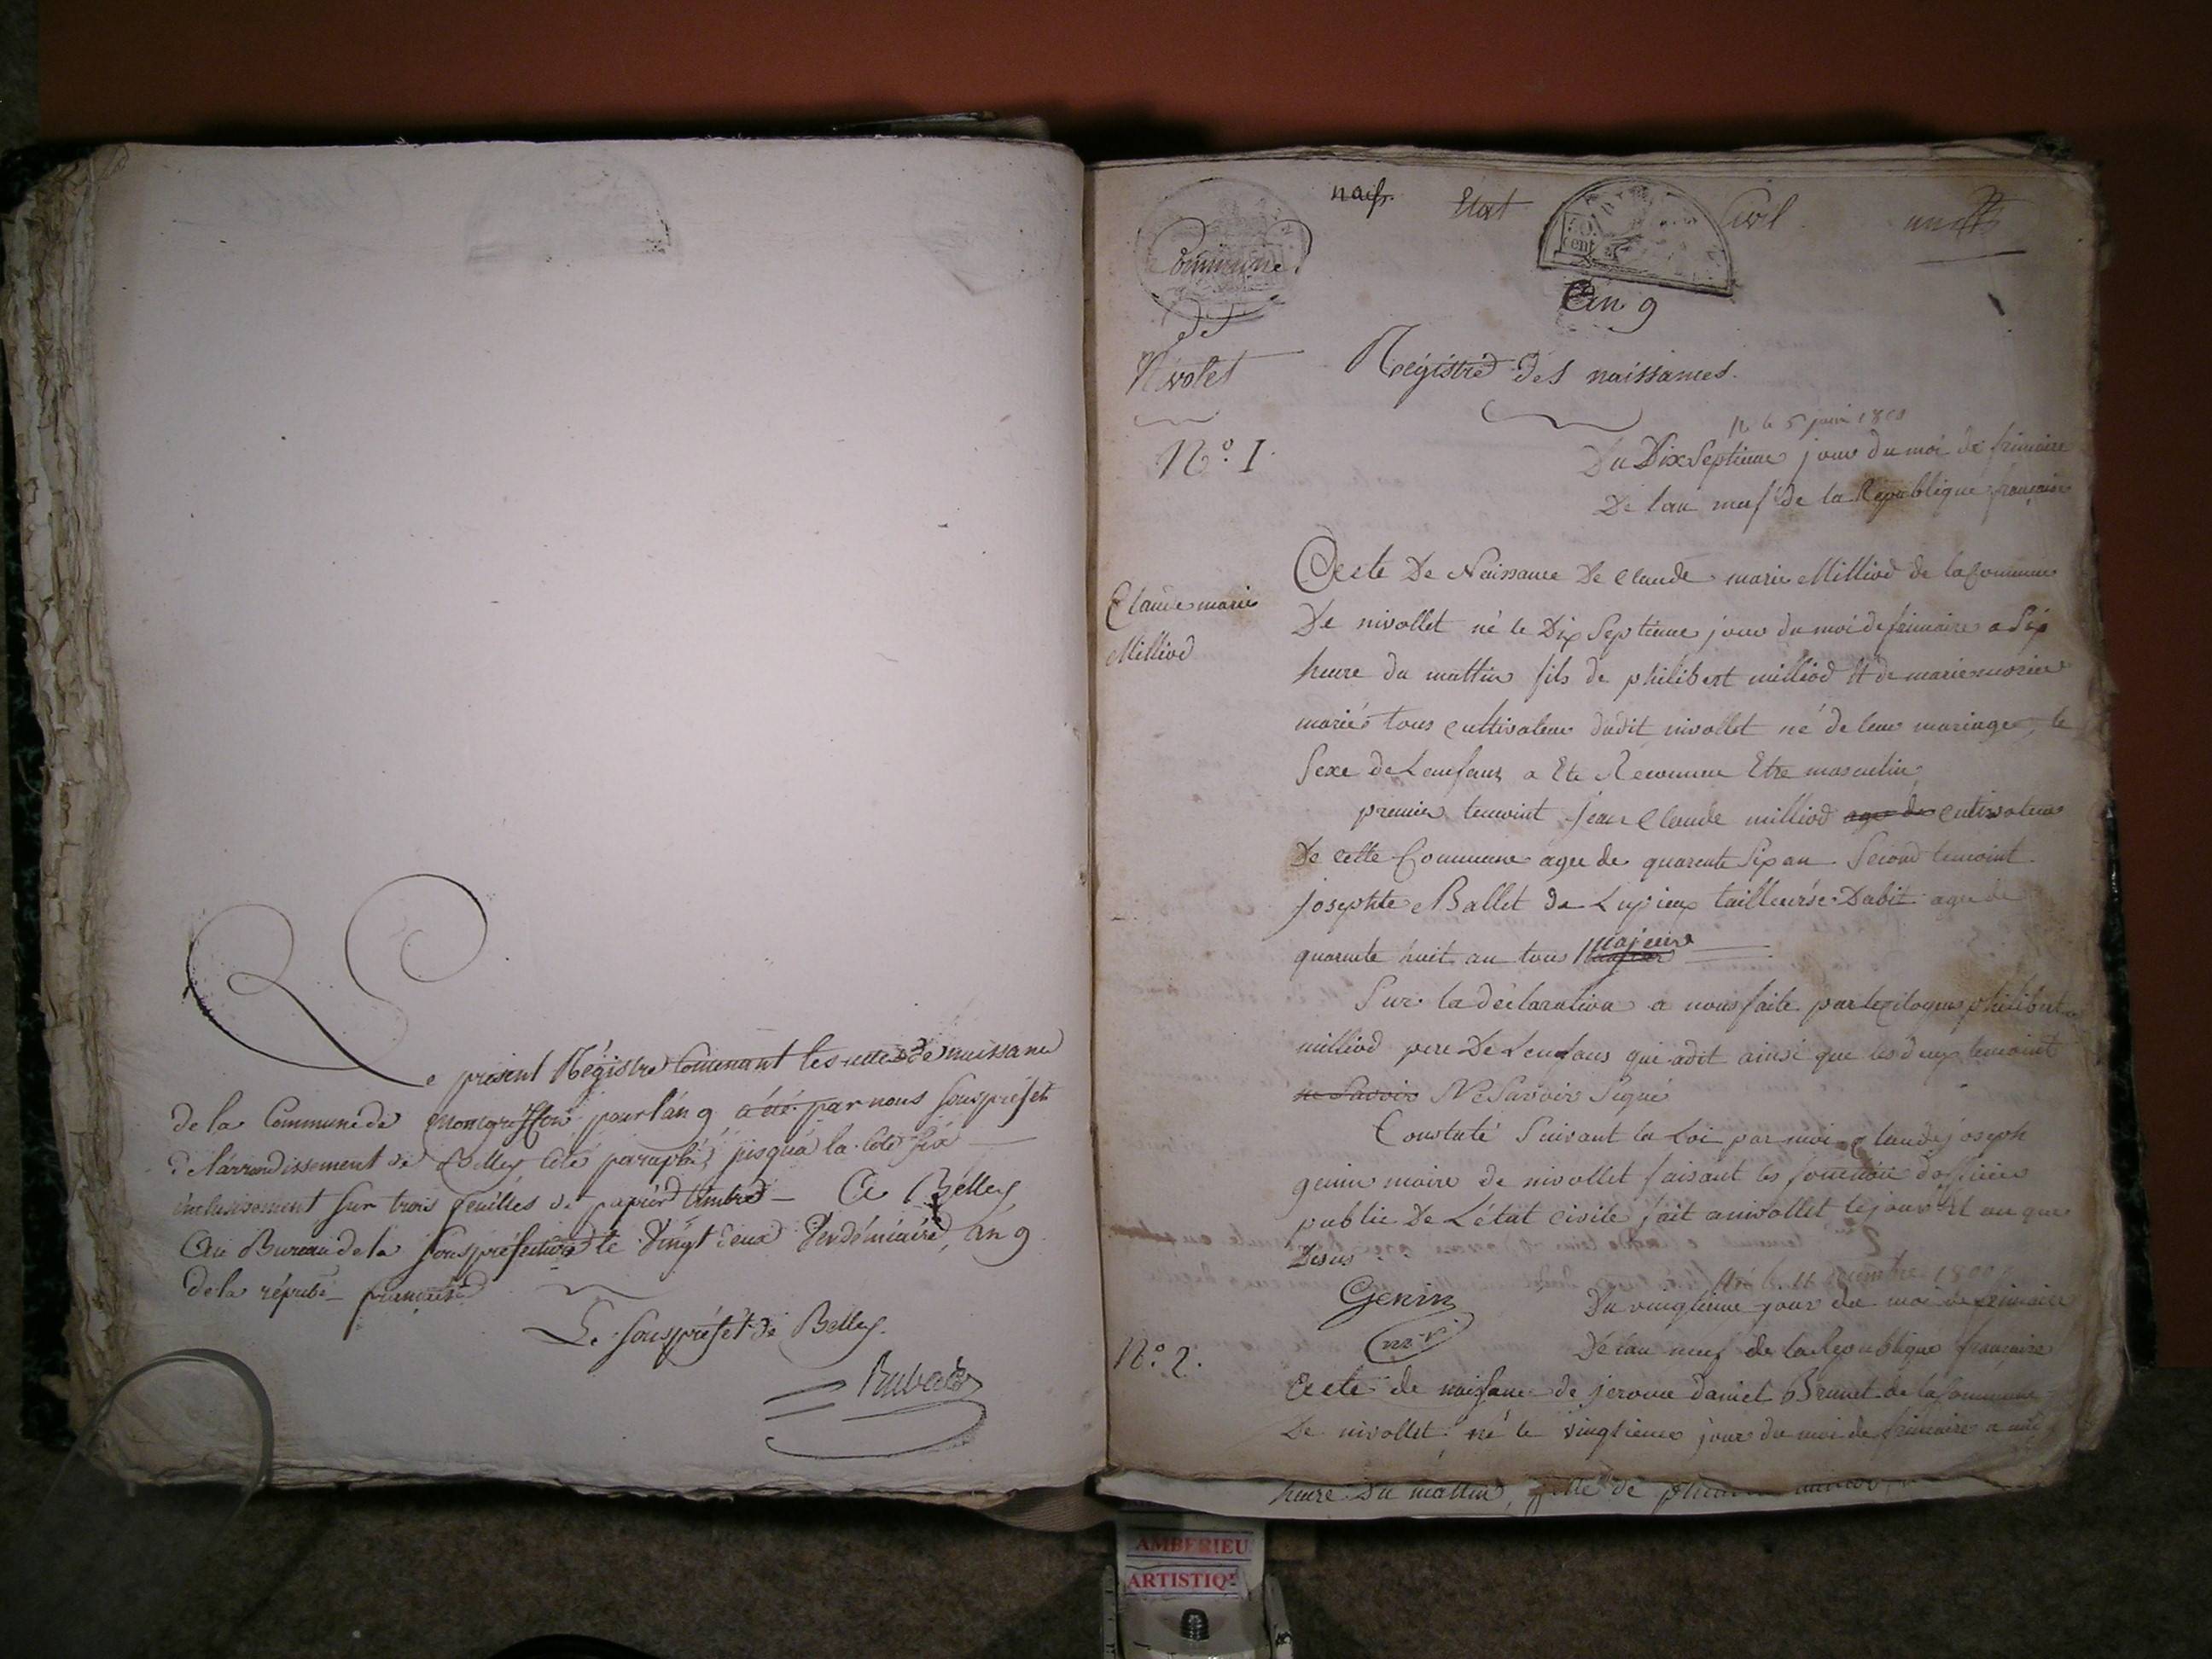 Le présent Régistre contenant les actes de naissance
de la Commune de Montgriffon pour l'an 9 a été par nous sousprefet
de l'arrondissement de Belley coté paraphé, jusqu'a la cote six
inclusivement sur trois feuilles de papier timbré — A Belley
Au Bureau de la Souspréfecture le Vingt deux Vendémiaire, an 9
de la répub. française
Le Souspréfet de Belley.
naiss.
Etat Civil
Commune
de
Nivolet
50 cent
An 9
Régistre des naissances.
N.º 1.
Du Dix Septieme jour du moi de frimaire
De lan neuf De la République française
Claude marie
Milliod
Acte De Naissance De Claude marie Milliod de la Commune
De nivollet né le Dix Septieme jour du moi de frimaire a Six
heure du mattin fils de philibert milliod et de marie
mariés tous cultivateur dudit nivollet né de leur mariage, le
Sexe de Lenfant a Ete Reconnue Etre masculin
premier temoint jean Claude milliod age de cultivateur
De cette Commune agee de quarente Six an. Second temoint
josephte Ballet de tailleurse Dabit agee de
quarente huit an tous majeure
Sur la déclaration a nous faite par le citoyen philibert
milliod pere De Lenfans qui adit ainsi que les deux temoint
ne Savoir Ne Savoir Signé
Constaté Suivant la Loi par moi Claude joseph
genin maire de nivollet faisant les fonction dofficier
public De L'état Civile fait a nivollet le jour Et an que
Desus
Genin
Du vingtieme jour du moi de frimaire
De lan neuf de la République française
N.º 2.
Acte de naissance de jerome daniel Brunet de la Commune
De nivollet né le vingtieme jour du moi de frimaire a
heure Du mattin, de
AMBERIEU
ARTISTIQ